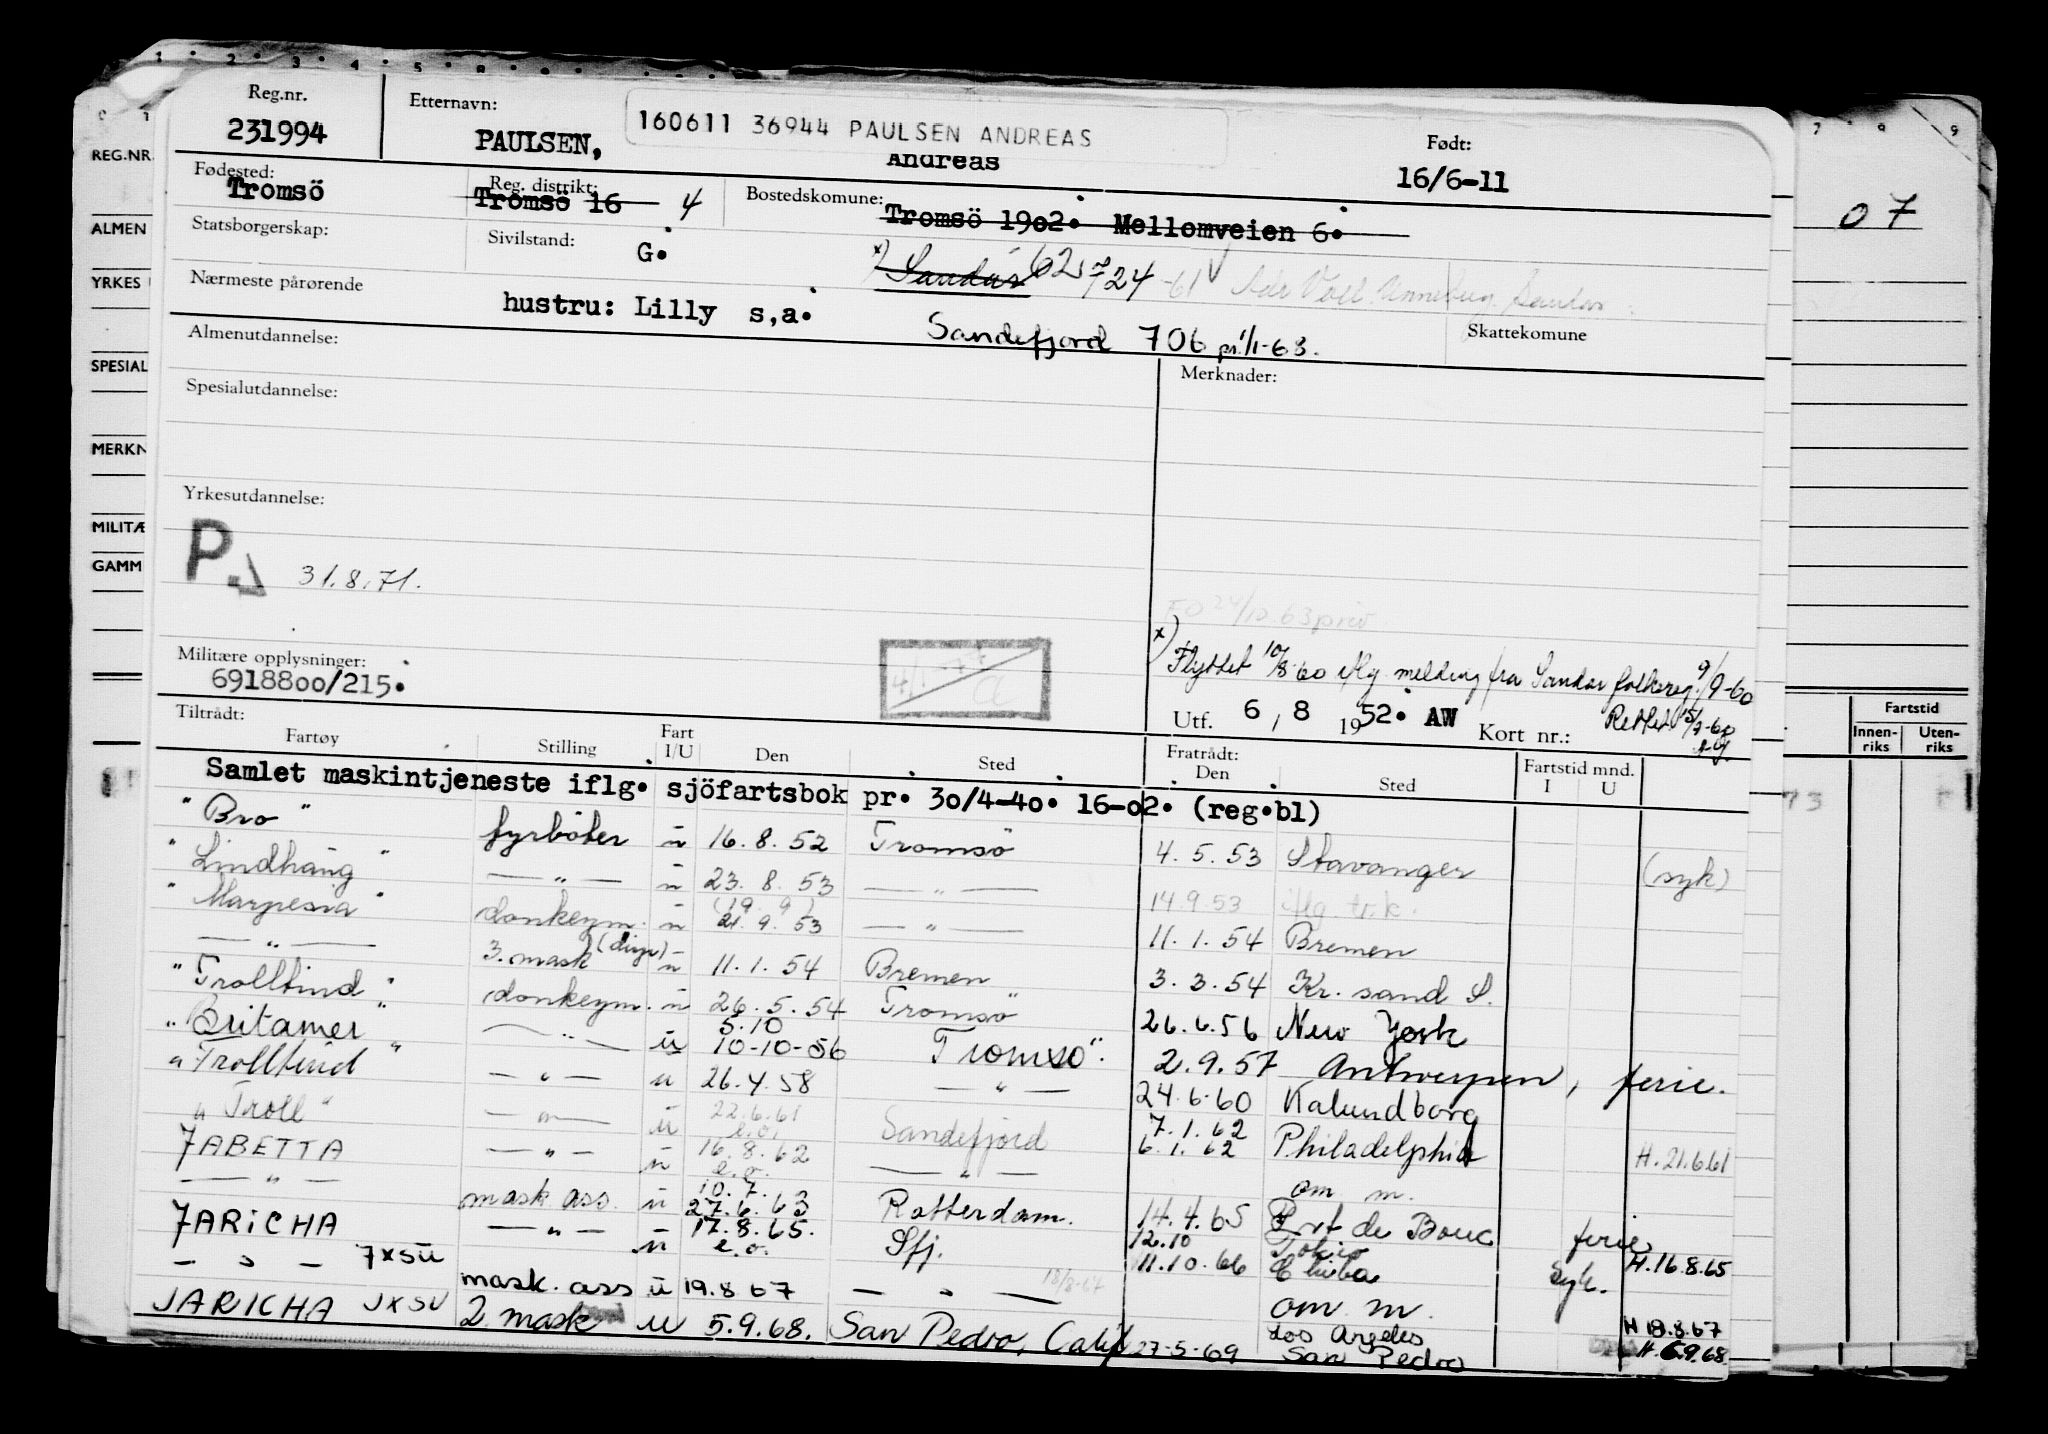 Reg.nr. Etternavn: 160611 36944 PAULSEN ANDREAS Født:
231994 PAULSEN, Andreas 16/6-11
Fødested: Reg. distrikt: Bostedskomune:
Tromsö Tromsö 16 4 Tromsö 1902. Mellomveien 6.
Statsborgerskap: Sivilstand: G. x) Sandar 62 724
Nærmeste pårørende
hustru: Lilly s,a. Sandefjord 706 pr. 1/1-63. Skattekomune
Almenutdannelse: Merknader:
Spesialutdannelse:
Yrkesutdannelse:
P
31.8.71.
FO 24/10 63 priv.
x) Flyttet 10/8-60 iflg melding fra Sandar folkereg. 9/9-60
Militære opplysninger:
6918800/215.
Utf. 6, 8 1952. AW Kort nr.: Rettet 15/9-60
Tiltrådt: Fratrådt: Fartstid mnd.
Fartøy Stilling Fart I/U Den Sted Den Sted I U
Samlet maskintjeneste iflg. sjöfartsbok pr. 30/4-40. 16-02. (reg.bl)
"Bro" fyrböter u 16.8.52 Tromsö 4.5.53 Stavanger (syk)
"Lindhaug" — " — u 23.8.53 — " — 14.9.53 iflg.
"Marpesia" donkeym. u (19.9) 21.9.53 — " — 11.1.54 Bremen
— " — 3. mask (disp) u 11.1.54 Bremen 3.3.54 Kr. sand S.
"Trolltind" donkeym. u 26.5.54 Tromsö 26.6.56 New York
"Britamer" — " — u 5.10 10-10-56 Tromsö. 2.9.57 Antwerpen, ferie.
"Trolltind" — " — u 26.4.58 — " — 24.6.60 Kalundborg
"Troll" — " — u 22.6.61 e.o. Sandefjord 7.1.62 6.1.62 Philadelphia H.21.6.61
JABETTA — " — u 16.8.62 e.o. — " — om m.
— " — mask ass. u 10.7. 27.6.63 Rotterdam. 14.4.65 Port de Bouc ferie
JARICHA — " — u 17.8.65. e.o. Sfj. 12.10 11.10.66 Tokio Chiba syk. H.16.8.65
— " — JXSU mask. ass u 19.8 67 — " — 18/8-67 om m. H 18.8.67
JARICHA JXSU 2 mask u 5.9.68. San Pedro, Calif 27-5-69 Los Angeles San Pedro H. 5.9.68.
REG.NR.
ALMEN
YRKES
SPESIAL
MERKN
MILITÆ
GAMM
07
Fartstid
Innen-riks Uten-riks
73